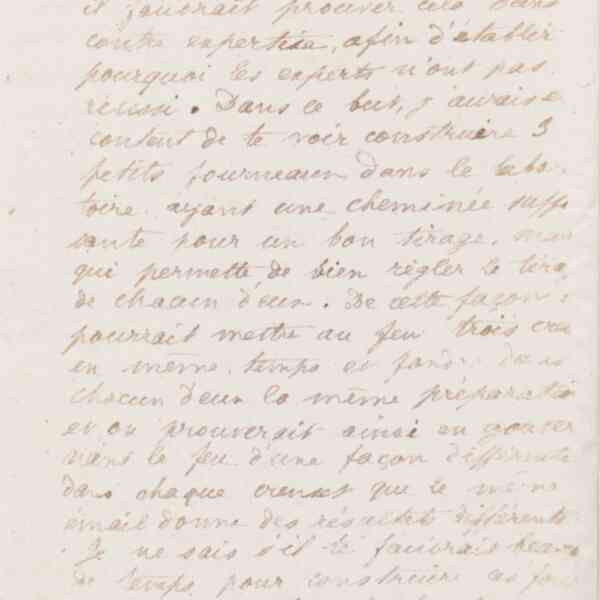 il faudrait prouver cela dans
contre expertise, afin d'établir
pourquoi les experts n'ont pas
réussi. Dans ce but, j'aurais
content de te voir construire 3
petits fourneaux dans le labo-
toire ayant une cheminée suffi
sante pour un bon tirage, mais
qui permette de bien régler le tira
de chacun d'eux. De cette façon
pourrait mettre au feu trois creu
en même temps et fondre dans
chacun d'eux la même préparatio
et on prouverait ainsi en gouver
nant le feu d'une façon différente
dans chaque creuset que le même
émail donne des résultats différents
Je ne sais s'il te faudrais beauc
de temps pour construire ces four